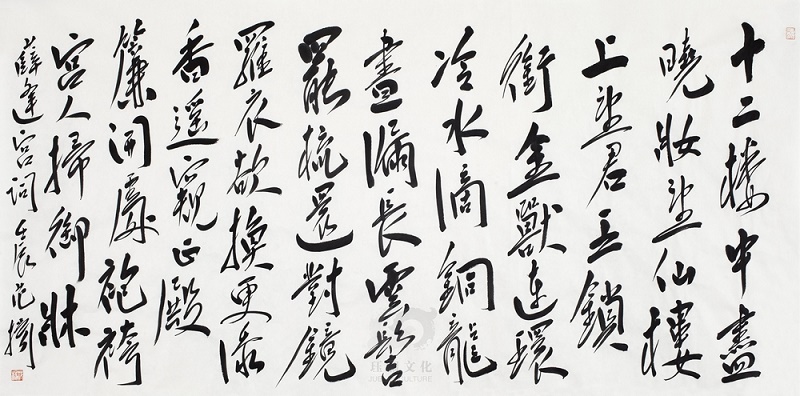 十二樓中盡
曉妝望仙樓
上望君王鎖
銜金獸連環
冷水滴銅龍
晝漏長雲髻
罷梳還對鏡
羅衣欲換更添
香遥窺正殿
簾開處袍袴
宮人掃御牀
薛逢宮詞 壬辰 范摘
文化
CULTURE